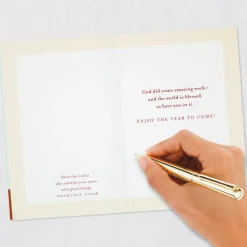 Bless the LORD...
who satisfies your years
with good things.
PSALM 103:2, 5 NASB
God did some amazing work—
and the world is blessed
to have you in it.
ENJOY THE YEAR TO COME!